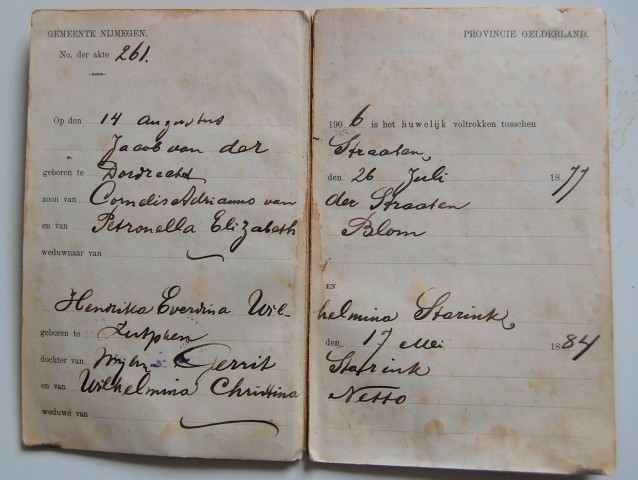 GEMEENTE NIJMEGEN.
No. der akte 261.
Op den 14 augustus
Jacob van der
geboren te Dordrecht
zoon van Cornelis Adrianus van
en van Petronella Elizabeth
weduwnaar van
Hendrika Everdina Wil-
geboren te Zutphen
dochter van Gerrit
en van Wilhelmina Christina
weduwe van
PROVINCIE GELDERLAND.
1906 is het huwelijk voltrokken tusschen
Straaten,
den 26 Juli 1877
der Straaten
Blom
EN
helmina Starink,
den 17 Mei 1884
Starink
Netto